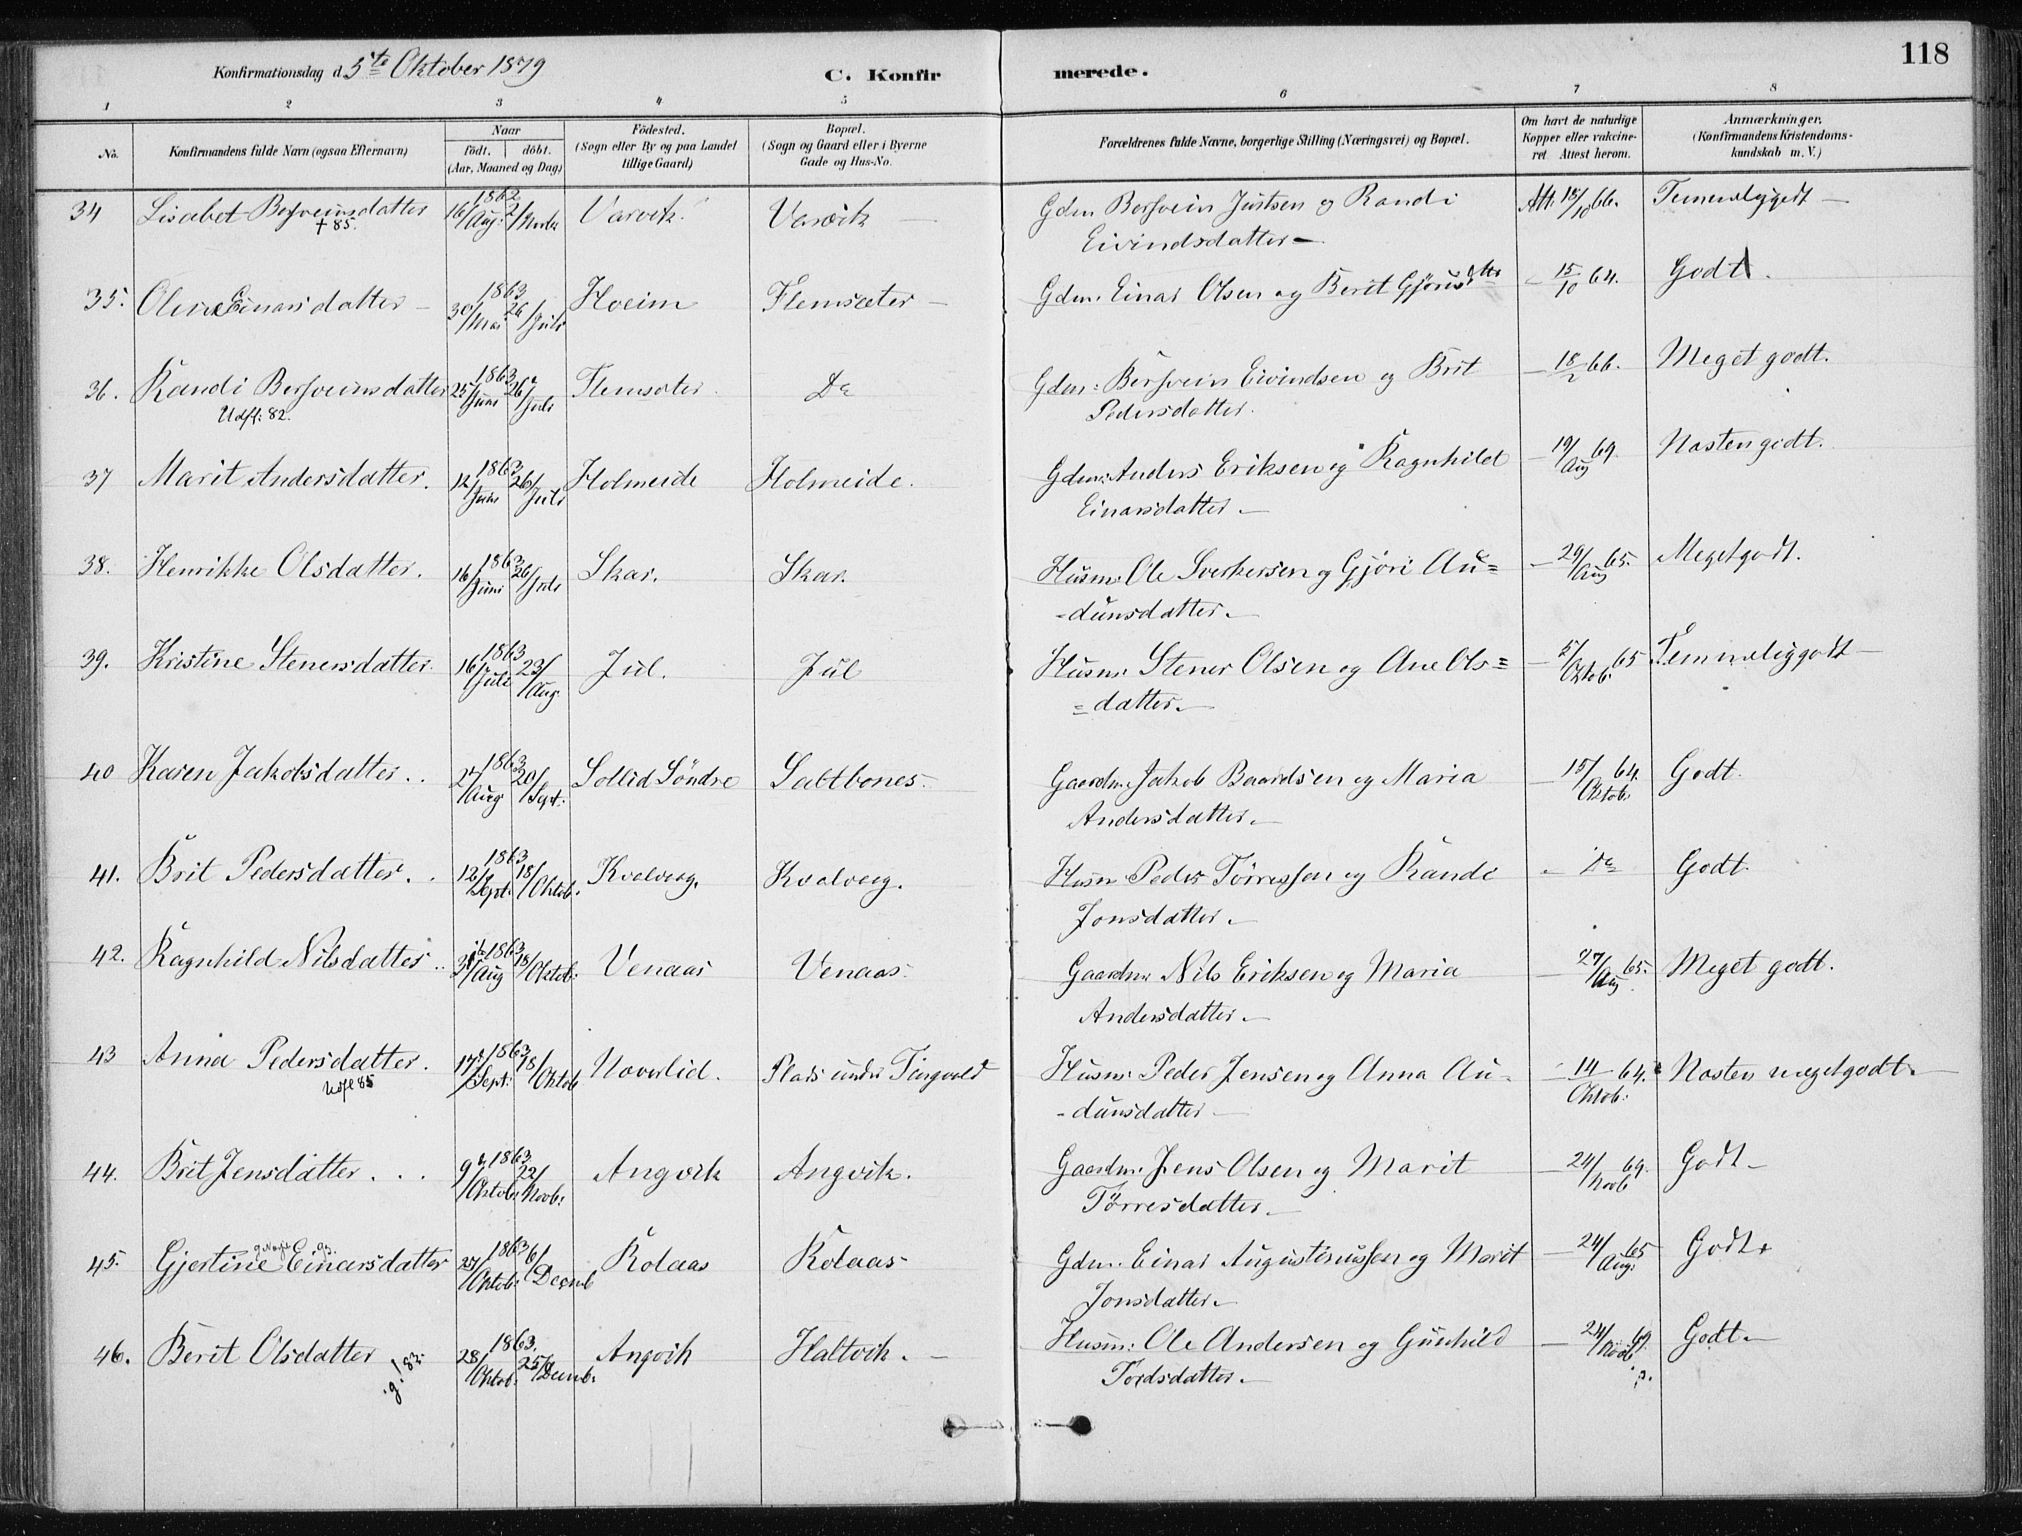 118
Konfirmationsdag d. 5te Oktober 1879
C. Konfirmerede.
1 2 3 4 5 6 7 8
No.
Konfirmandens fulde Navn (ogsaa Efternavn)
Naar
Födt. döbt.
(Aar, Maaned og Dag)
Födested.
(Sogn eller By og paa Landet tillige Gaard)
Bopæl.
(Sogn og Gaard eller i Byerne Gade og Hus-No.
Forældrenes fulde Navne, borgerlige Stilling (Næringsvei) og Bopæl.
Om havt de naturlige Kopper eller vakcineret Attest herom.
Anmærkninger.
(Konfirmandens Kristendomskundskab m. V.)
34 Lisabet Bersveinsdatter 1862 16/Aug. Varvik. Varvik — Gdm. Bersvein Justsen og Randi Att. 15/10 66. Temmeligodt —
+ 85. Eivindsdatter —
35. Oline Einarsdatter — 1863 30/Mai 26/Juli Hoeim Flemsæter — Gdm. Einar Olsen og Berit Gjørusdtr — 15/10 64. Godt.
36. Randi Bersveinsdatter 1863 25/Juni 26/Juli Flemsæter. Do Gdm. Bersvein Eivindsen og Brit — 18/2 66. Meget godt.
Udfl: 82. Pedersdatter.
37 Marit Andersdatter. 1863 12/Juni 26/Juli Holmeide Holmeide. Gdm. Anders Eriksen og Ragnhild — 19/Aug 69. Næsten godt.
Einarsdatter. —
38. Henrikke Olsdatter. 1863 16/Juni 26/Juli Skar. Skar. Husm. Ole Sverkersen og Gjøri Au= — 29/Aug 65. Meget godt.
-dunsdatter. —
39. Kristine Stenersdatter. 1863 16/Juli 23/Aug. Jul. Jul Husm. Stener Olsen og Ane Ols= — 5/Oktob. 65 Temmeliggodt —
=datter. —
40 Karen Jakobsdatter . . 1863 27/Aug 20/Sept. Sollid Söndre Saltbones. Gaardm. Jakob Baardsen og Maria — 15/Oktob. 64. Godt.
Andersdatter. —
41. Brit Pedersdatter. . 1863 12/Sept. 18/Oktob. Kvalvaag. Kvalvaag. Husm. Peder Törressen og Randi - Do Godt.
Jonsdatter. —
42. Ragnhild Nilsdatter . . 1863 /Aug 18/Oktob. Venaas Venaas. Gaardm. Nils Eriksen og Maria — 27/Aug 65. Meget godt.
Andersdatter. —
43 Anna Pedersdatter. 1863 17/Sept. 18/Oktob Uoverlid. Plads under Tingvold Husm. Peder Jensen og Anna Au- — 14/Oktob. 64. Næsten megetgodt.
Udfl 85 -dunsdatter —
44. Brit Jensdatter . . . 1863 9/Oktob. 22/Novb. Angvik Angvik. Gaardm. Jens Olsen og Marit — 24/Novb 69. Godt —
Törresdatter. —
45. Gjertine Einarsdatter 1863 27/Oktob. 6/Decmb Rolaas Rolaas. Gdm. Einar Augustinussen og Marit — 24/Aug. 65 Godt.
Jonsdatter. —
46. Berit Olsdatter 1863. 28/Oktob. 25/Decmb. Angvik Haltvik. — Husm. Ole Andersen og Gunhild — 24/Novb 69 Godt. —
g! 83. Tordsdatter. —